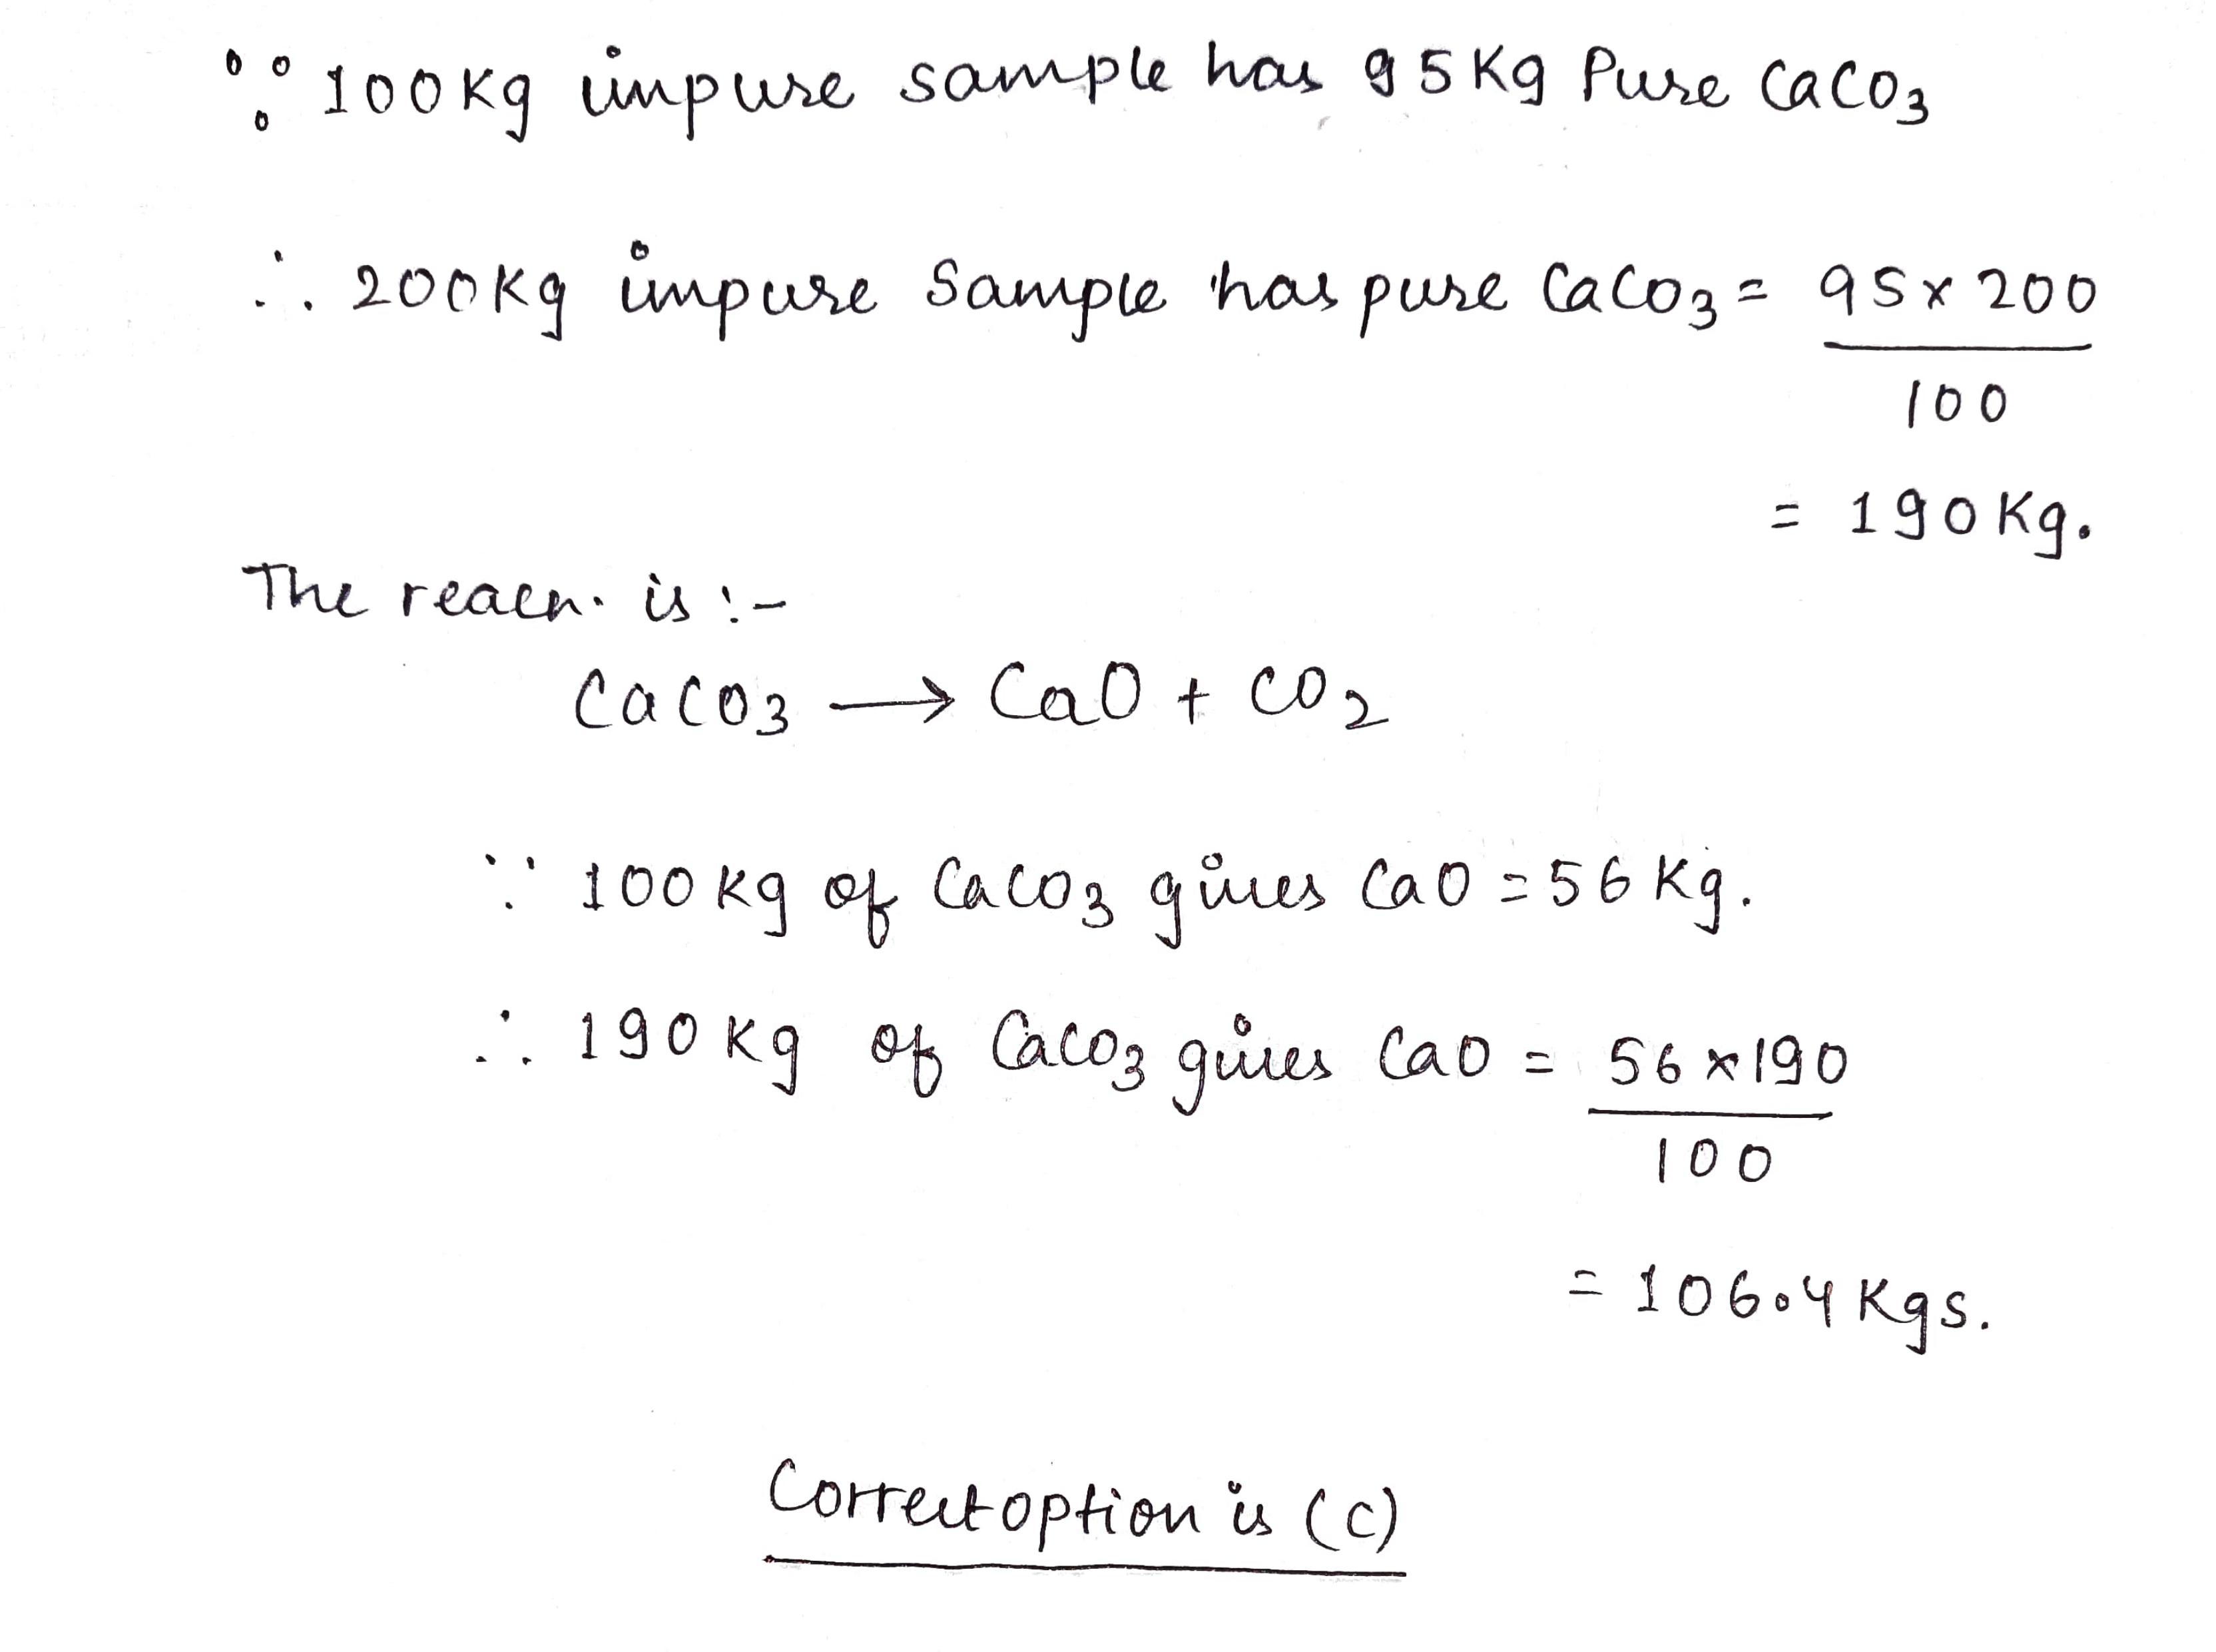 ∵ 100kg impure sample has 95Kg Pure CaCO3
∴ 200kg impure Sample has pure CaCO3 = 95x200/100
= 190Kg.
The reacn. is :-
CaCO3 → CaO + CO2
∵ 100kg of CaCO3 gives CaO = 56Kg.
∴ 190kg of CaCO3 gives CaO = 56x190/100
= 106.4Kgs.
Correct option is (c)